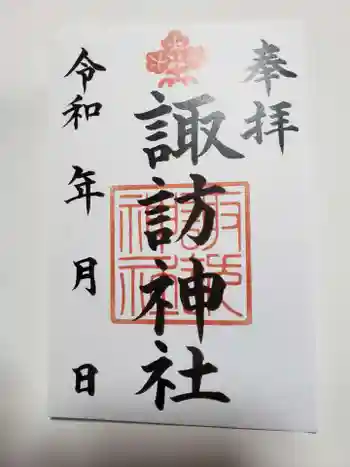 奉拝
諏訪神社
令和 年 月 日